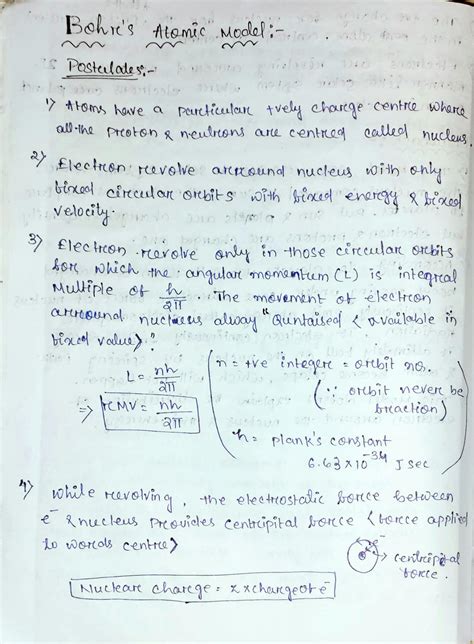 Bohr's Atomic Model:-
Postulates:-
1) Atoms have a particular +vely charge centre where
all the proton & neutrons are centred called nucleus.
2) Electron revolve arround nucleus with only
fixed circular orbits with fixed energy & fixed
velocity.
3) Electron revolve only in those circular orbits
for which the angular momentum (L) is integral
Multiple of h/2π. The movement of electron
arround nucleus alway "Quntaised < available in
fixed value>".
L = nh/2π
⇒ rMV = nh/2π
n = +ve integer = orbit no.
(∵ orbit never be
fraction)
h = plank's constant
6.63 × 10⁻³⁴ J sec
4) While revolving, the electrostatic force between
e⁻ & nucleus provides centripital force < force applied
to words centre>
e⁻
→ centripital
force.
Nuclear charge = z × charge of e⁻